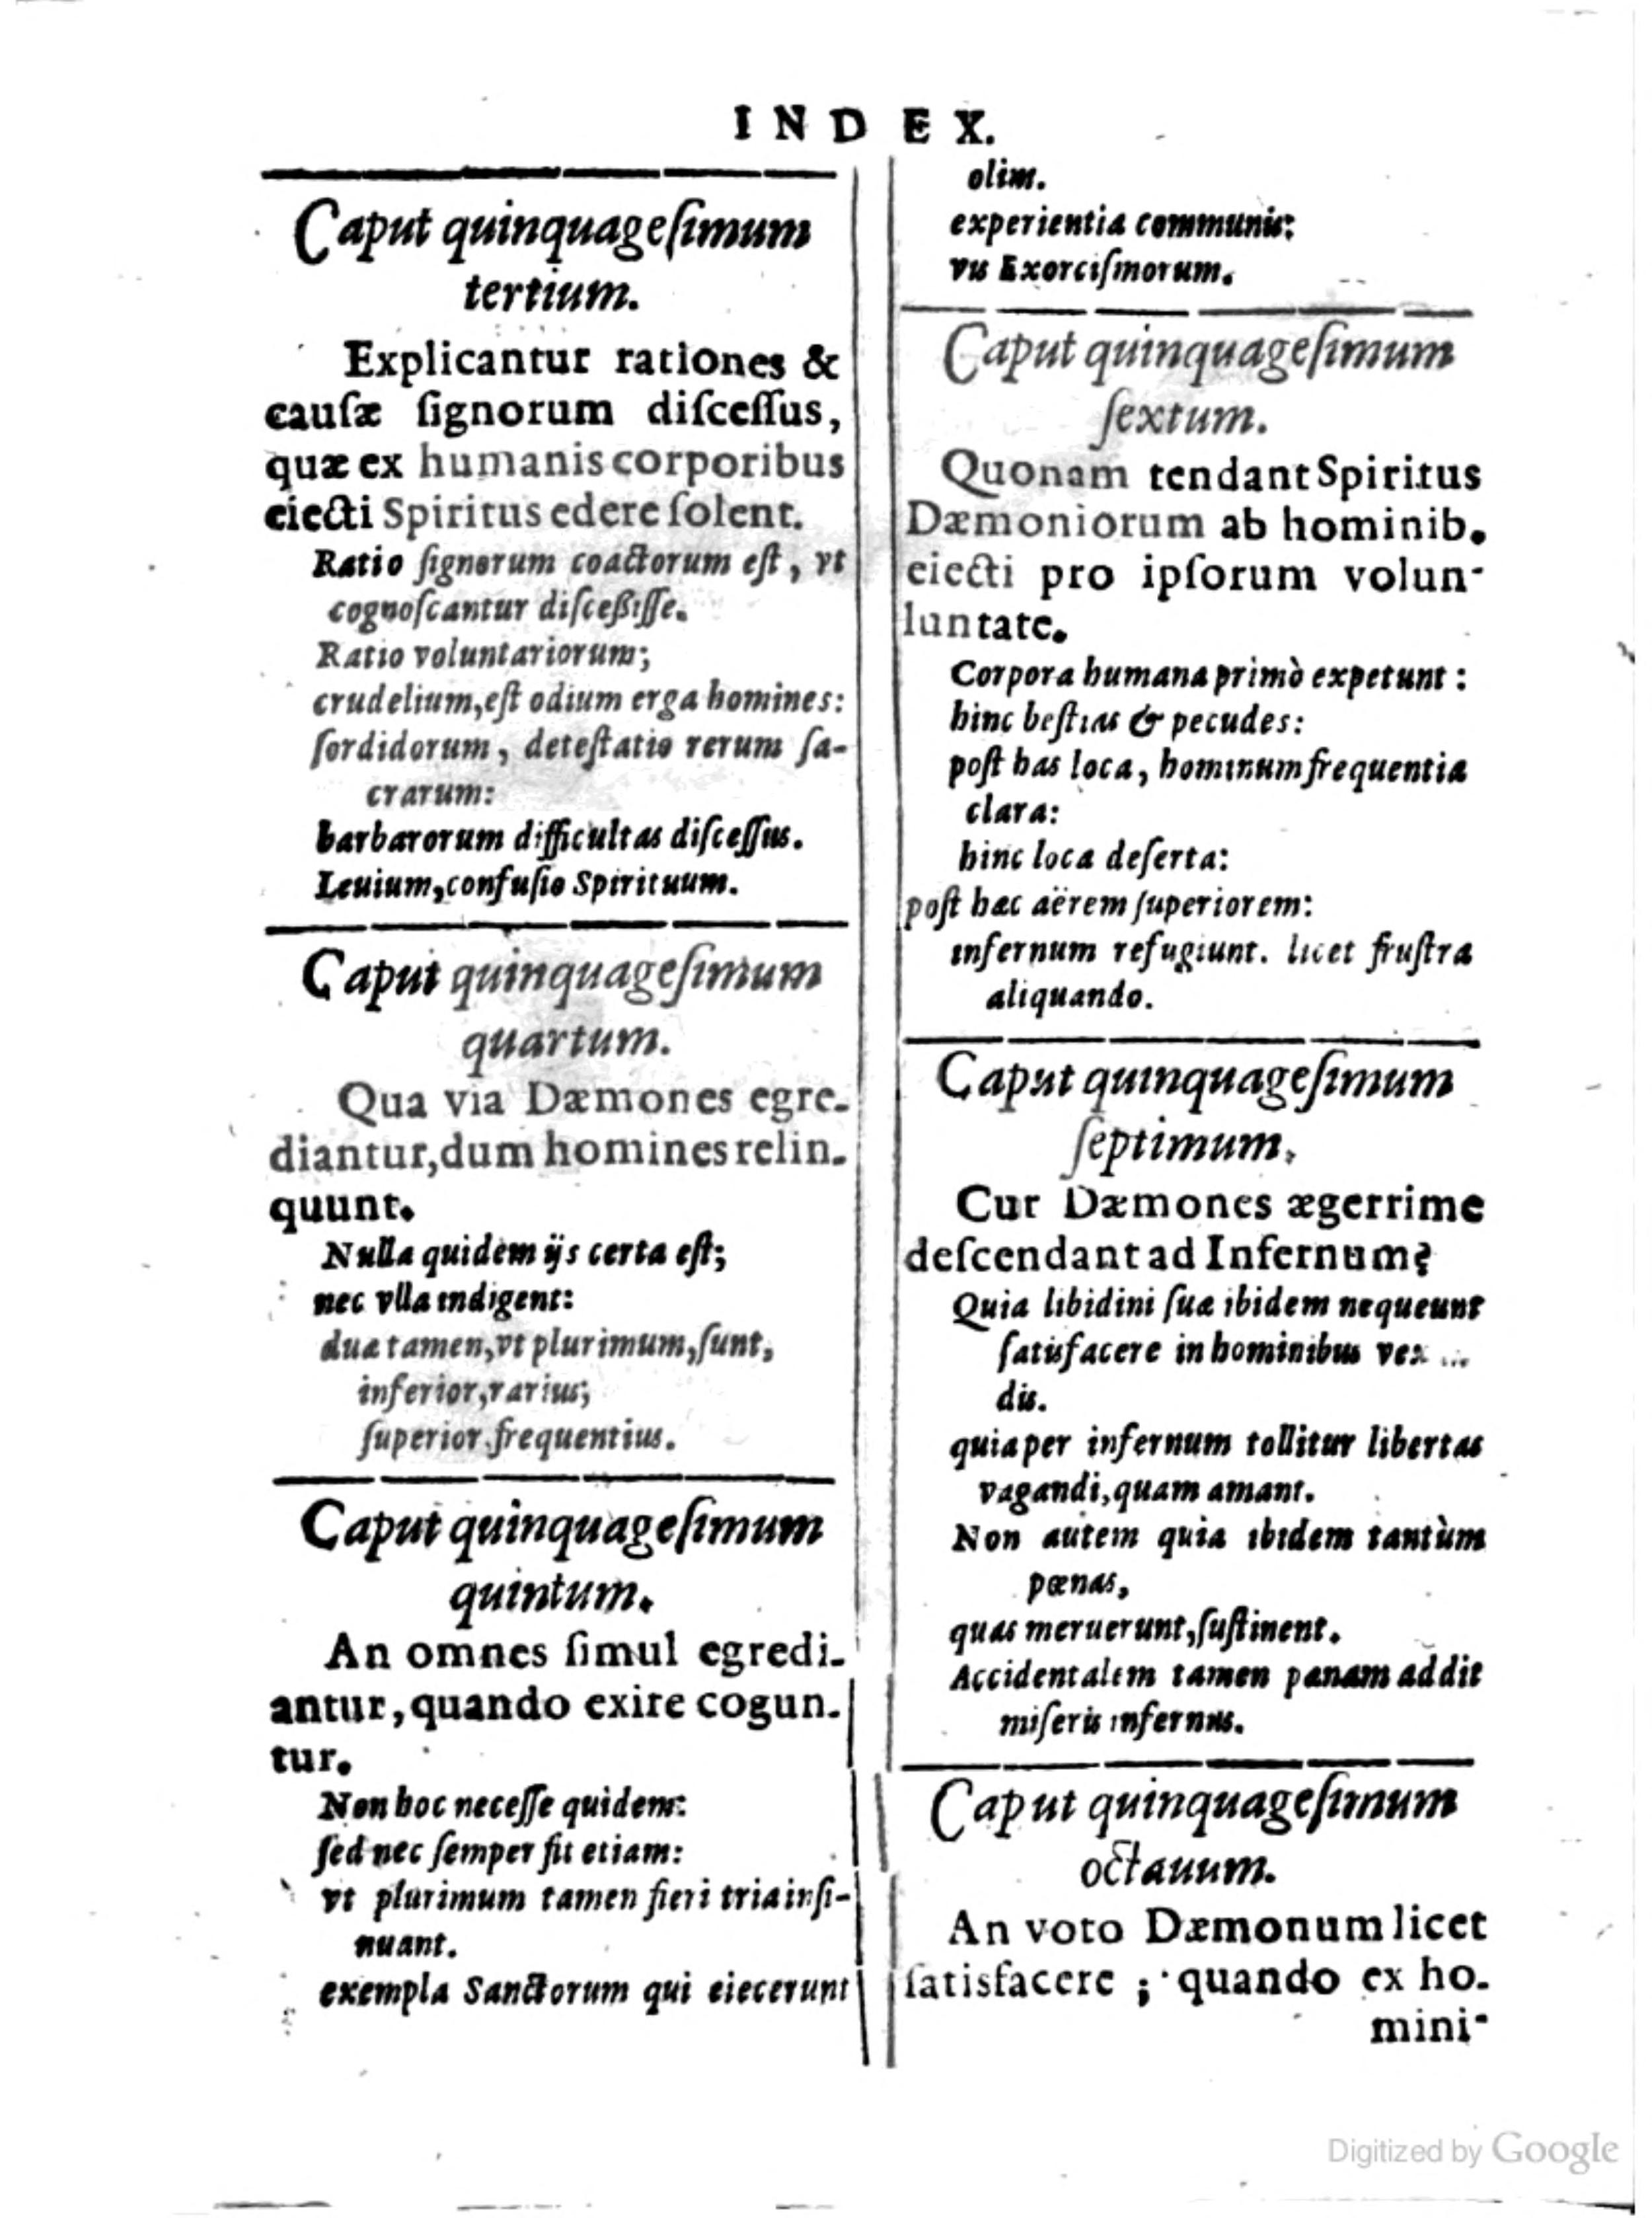 INDEX.
Caput quinquageſimum
tertium.
Explicantur rationes &
cauſæ ſignorum diſceſſus,
quæ ex humanis corporibus
eiecti Spiritus edere ſolent.
Ratio ſignorum coactorum eſt, vt
cognoſcantur diſceßiſſe.
Ratio voluntariorum;
crudelium, eſt odium erga homines:
ſordidorum, deteſtatio rerum ſa-
crarum:
barbarorum difficultas diſceſſus.
Leuium, confuſio Spirituum.
Caput quinquageſimum
quartum.
Qua via Dæmones egre-
diantur, dum homines relin-
quunt.
Nulla quidem ijs certa eſt;
nec vlla indigent:
duæ tamen, vt plurimum, ſunt,
inferior, rarius;
ſuperior frequentius.
Caput quinquageſimum
quintum.
An omnes ſimul egredi-
antur, quando exire cogun-
tur.
Non hoc neceſſe quidem:
ſed nec ſemper fit etiam:
vt plurimum tamen fieri tria inſi-
nuant.
exempla Sanctorum qui eiecerunt
olim.
experientia communis:
vis Exorciſmorum.
Caput quinquageſimum
ſextum.
Quonam tendant Spiritus
Dæmoniorum ab hominib.
eiecti pro ipſorum volun-
luntate.
Corpora humana primò expetunt:
hinc beſtias & pecudes:
poſt has loca, hominum frequentia
clara:
hinc loca deſerta:
poſt hæc aërem ſuperiorem:
infernum refugiunt. licet fruſtra
aliquando.
Caput quinquageſimum
ſeptimum.
Cur Dæmones ægerrime
deſcendant ad Infernum?
Quia libidini ſuæ ibidem nequeunt
ſatisfacere in hominibus vex
dis.
quia per infernum tollitur libertas
vagandi, quam amant.
Non autem quia ibidem tantùm
pœnas,
quas meruerunt, ſuſtinent.
Accidentalem tamen pœnam addit
miſeris infernus.
Caput quinquageſimum
octauum.
An voto Dæmonum licet
ſatisfacere; quando ex ho-
mini-
Digitized by Google